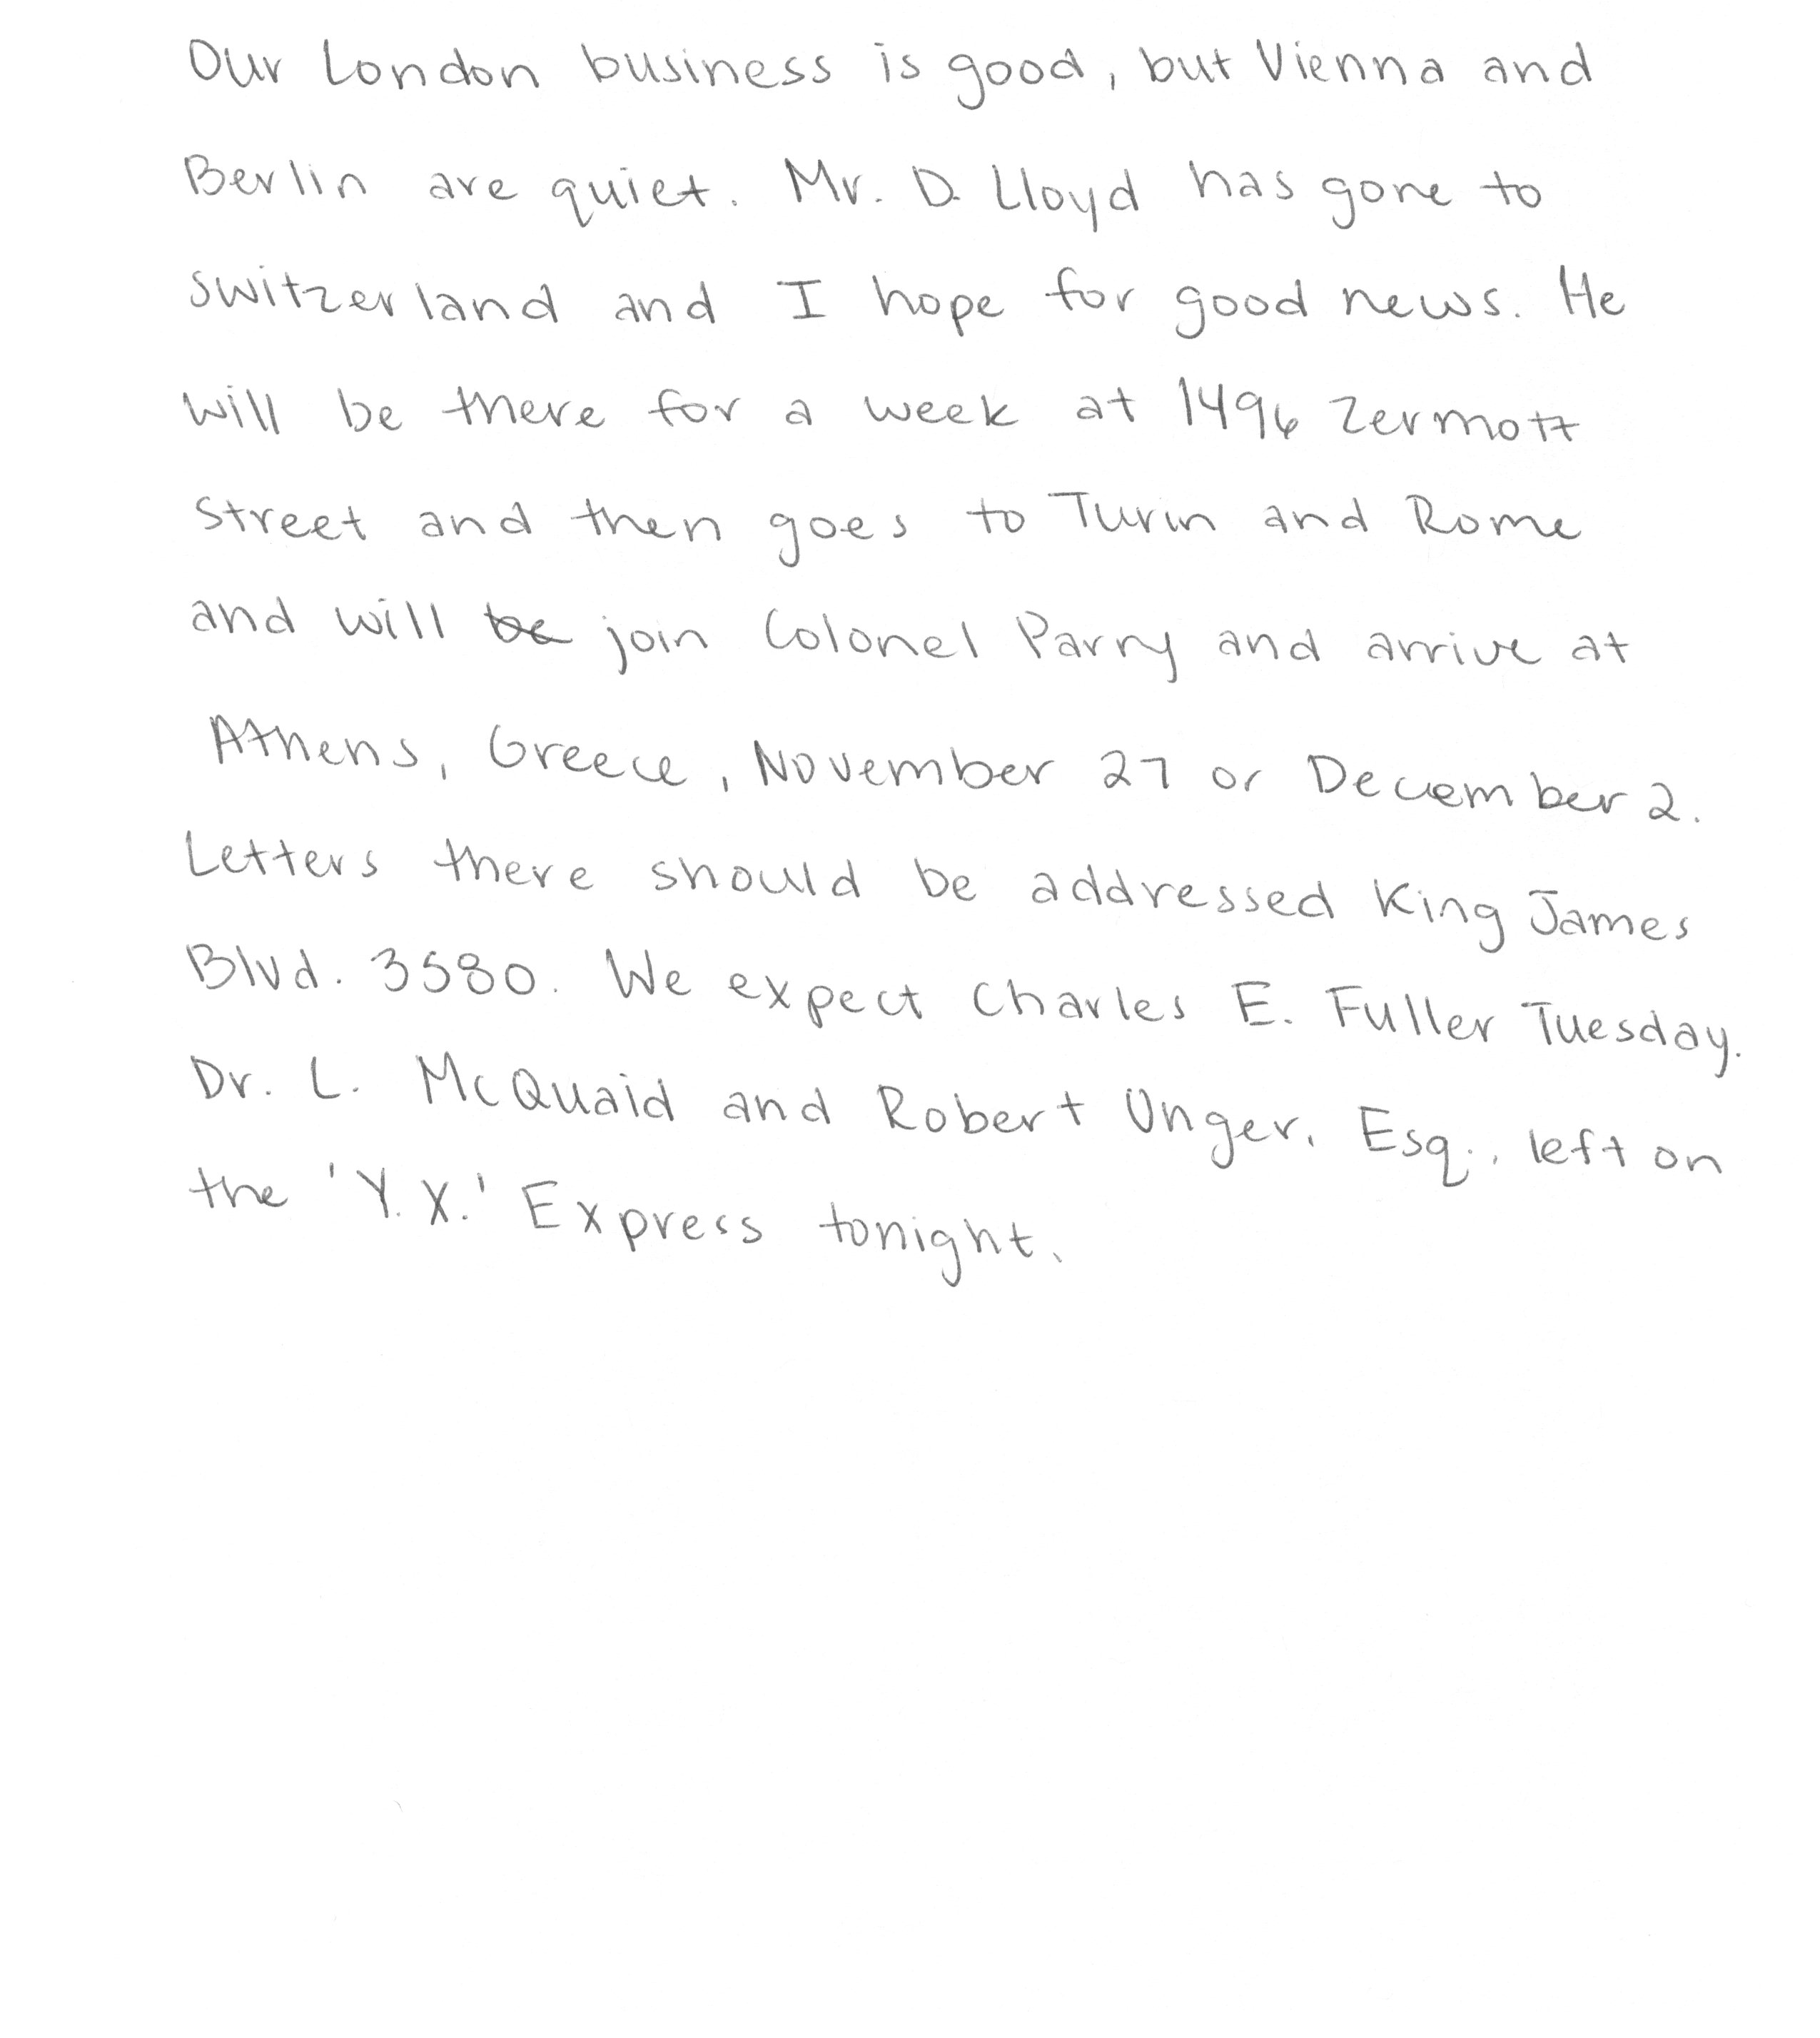 Our London business is good, but Vienna and
Berlin are quiet. Mr. D. Lloyd has gone to
Switzerland and I hope for good news. He
will be there for a week at 1496 Zermott
Street and then goes to Turin and Rome
and will be join Colonel Parry and arrive at
Athens, Greece, November 27 or December 2.
Letters there should be addressed King James
Blvd. 3580. We expect Charles E. Fuller Tuesday.
Dr. L. McQuaid and Robert Unger, Esq., left on
the 'Y.X.' Express tonight.